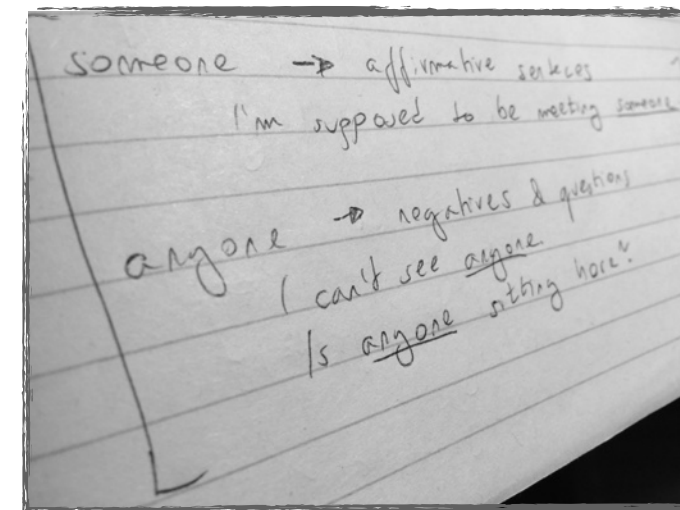 someone → affirmative senteces
I'm supposed to be meeting someone
anyone → negatives & questions
I can't see anyone.
Is anyone sitting here?